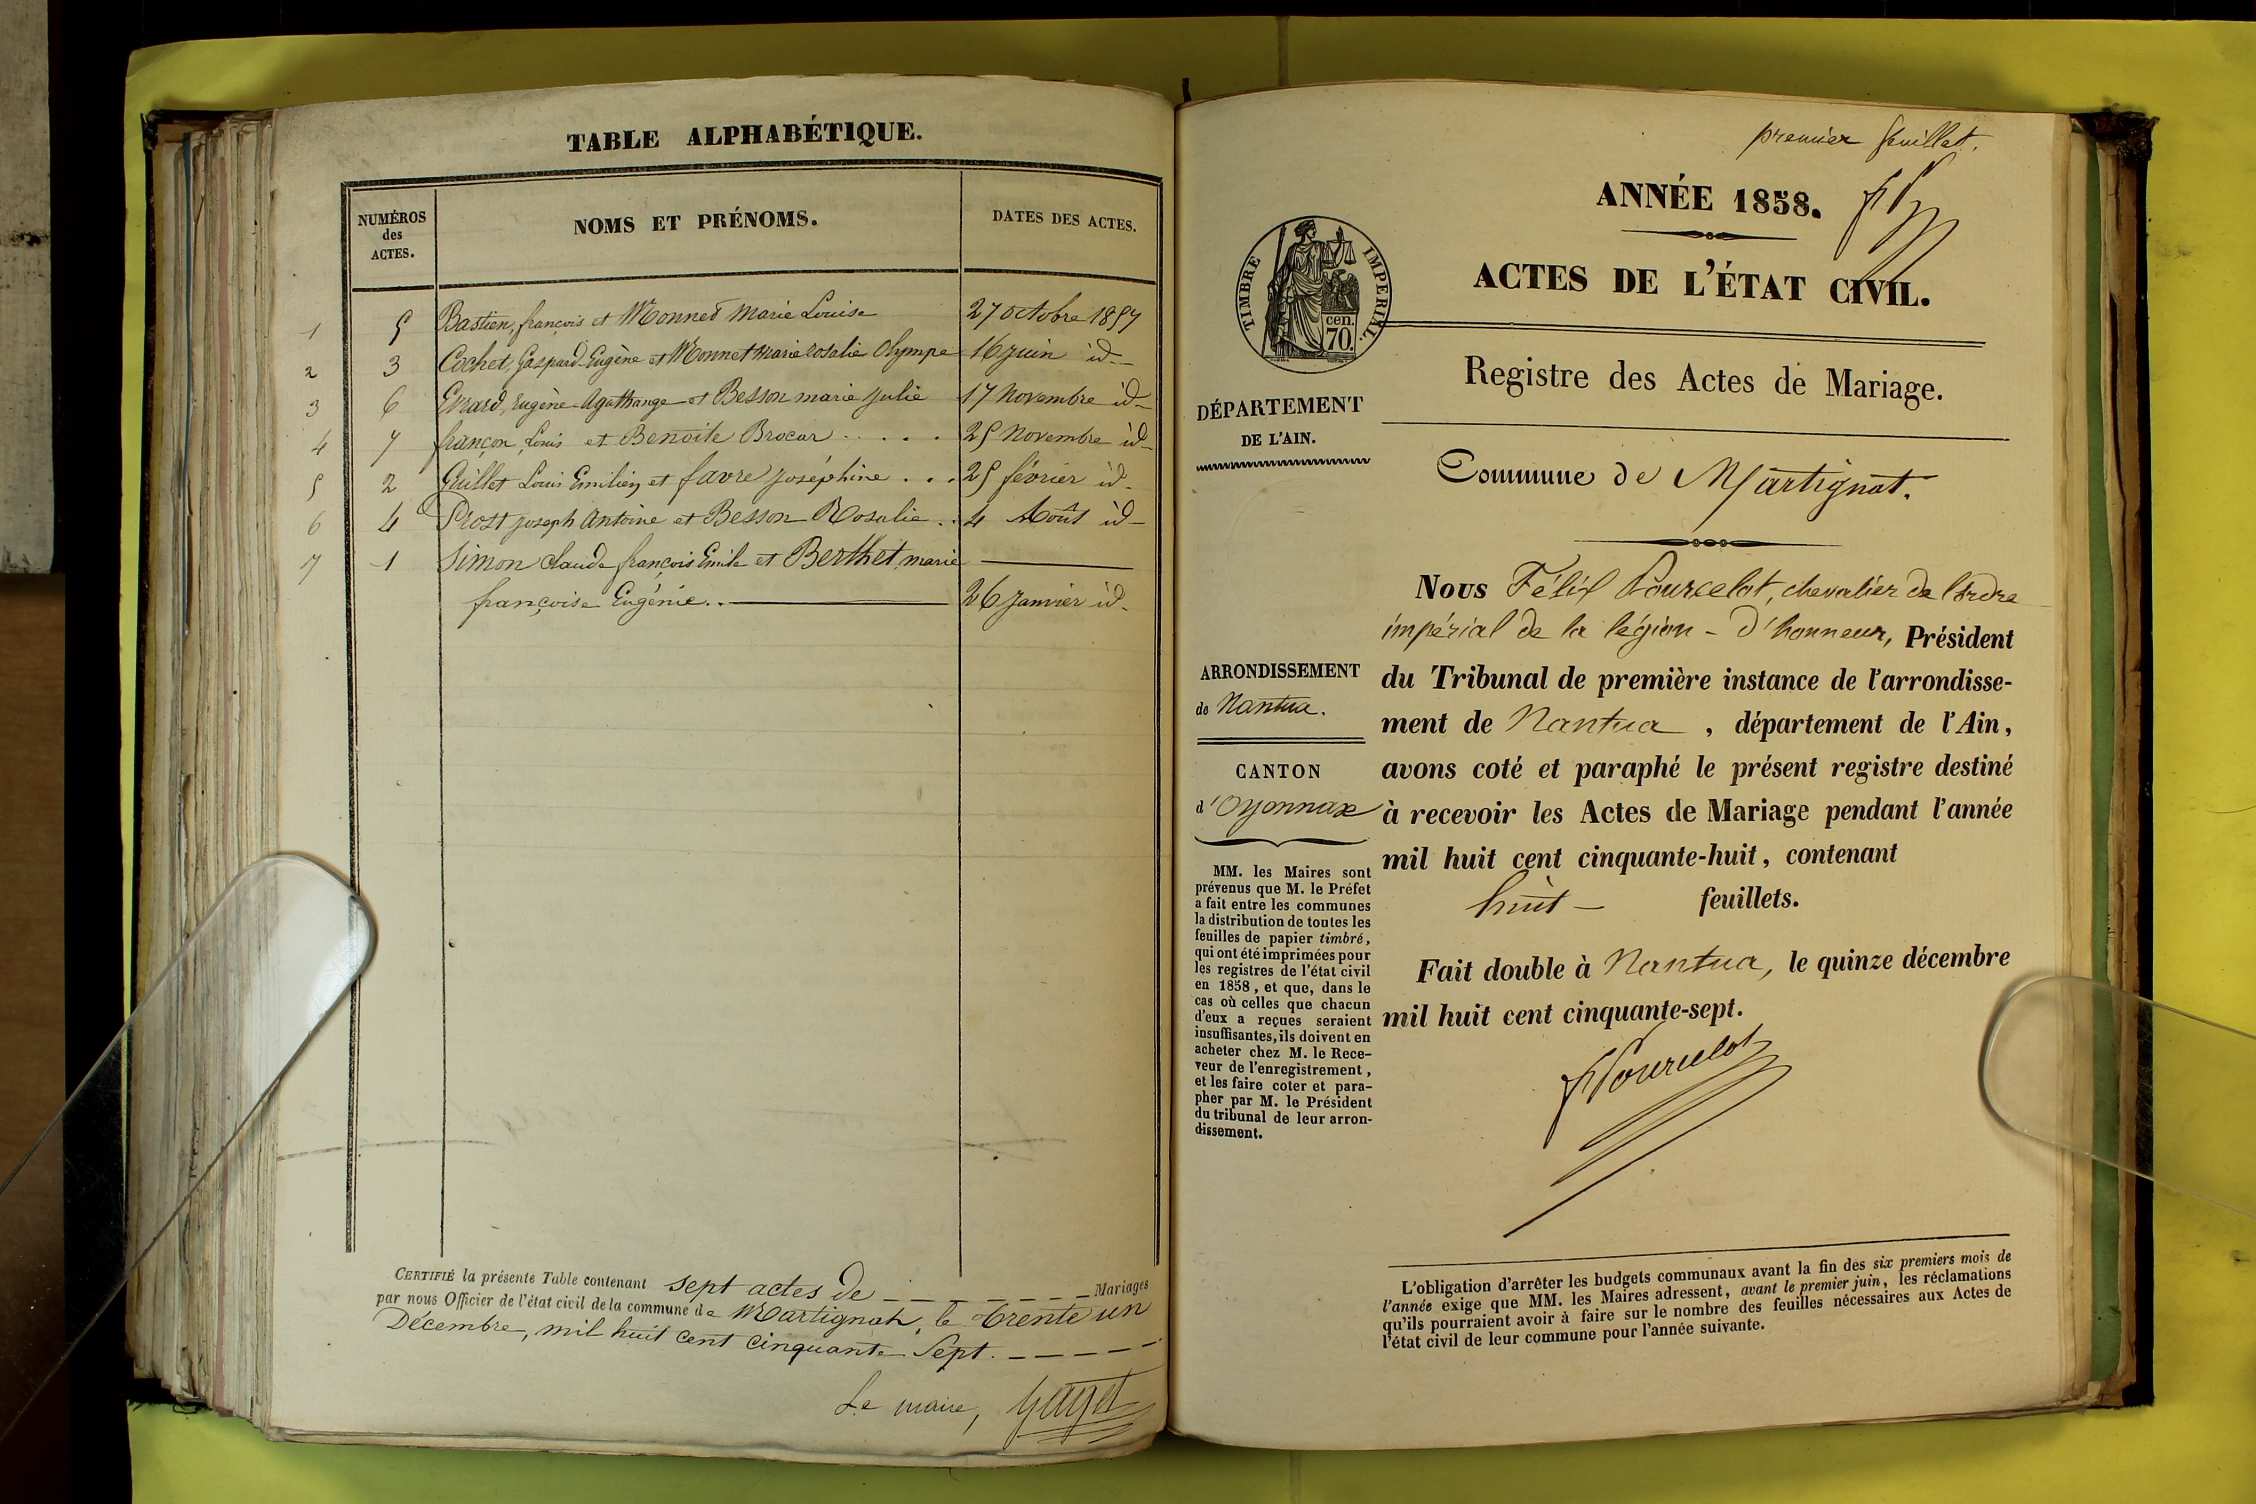 TABLE ALPHABÉTIQUE.
NUMÉROS des ACTES.
NOMS ET PRÉNOMS.
DATES DES ACTES.
1 5 Bastien, françois et Monnet Marie Louise 27 octobre 1857
2 3 Cochet, Gaspard Eugène et Monnet Marie rosalie Olympe 16 juin id-
3 6 Evrard, Eugène Agathange et Besson marie julie 17 Novembre id-
4 7 françon, Louis et Benoite Brocar . . . . . 25 Novembre id-
5 2 Guillet Louis Emilien et favre joséphine . . . 25 février id-
6 4 Prost joseph Antoine et Besson Rosalie . . 4 Août id-
7 1 Simon claude françois Emile et Berthet, marie
françoise Eugénie . . 26 janvier id-
CERTIFIÉ la présente Table contenant sept actes de Mariages
par nous Officier de l'état civil de la commune de Martignat, le trente un
Décembre, mil huit cent cinquante Sept.
Le maire, Gayet
premier feuillet.
ANNÉE 1858.
ACTES DE L'ÉTAT CIVIL.
TIMBRE IMPÉRIAL.
70 cen.
Registre des Actes de Mariage.
DÉPARTEMENT
DE L'AIN.
Commune de Martignat.
Nous Félix Pourcelot, chevalier de l'ordre
impérial de la légion-d'honneur, Président
du Tribunal de première instance de l'arrondisse-
ment de Nantua, département de l'Ain,
avons coté et paraphé le présent registre destiné
à recevoir les Actes de Mariage pendant l'année
mil huit cent cinquante-huit, contenant
huit - feuillets.
Fait double à Nantua, le quinze décembre
mil huit cent cinquante-sept.
F Pourcelot
ARRONDISSEMENT
de Nantua.
CANTON
d'Oyonnax
MM. les Maires sont
prévenus que M. le Préfet
a fait entre les communes
la distribution de toutes les
feuilles de papier timbré,
qui ont été imprimées pour
les registres de l'état civil
en 1858, et que, dans le
cas où celles que chacun
d'eux a reçues seraient
insuffisantes, ils doivent en
acheter chez M. le Rece-
veur de l'enregistrement,
et les faire coter et para-
pher par M. le Président
du tribunal de leur arron-
dissement.
L'obligation d'arrêter les budgets communaux avant la fin des six premiers mois de
l'année exige que MM. les Maires adressent, avant le premier juin, les réclamations
qu'ils pourraient avoir à faire sur le nombre des feuilles nécessaires aux Actes de
l'état civil de leur commune pour l'année suivante.